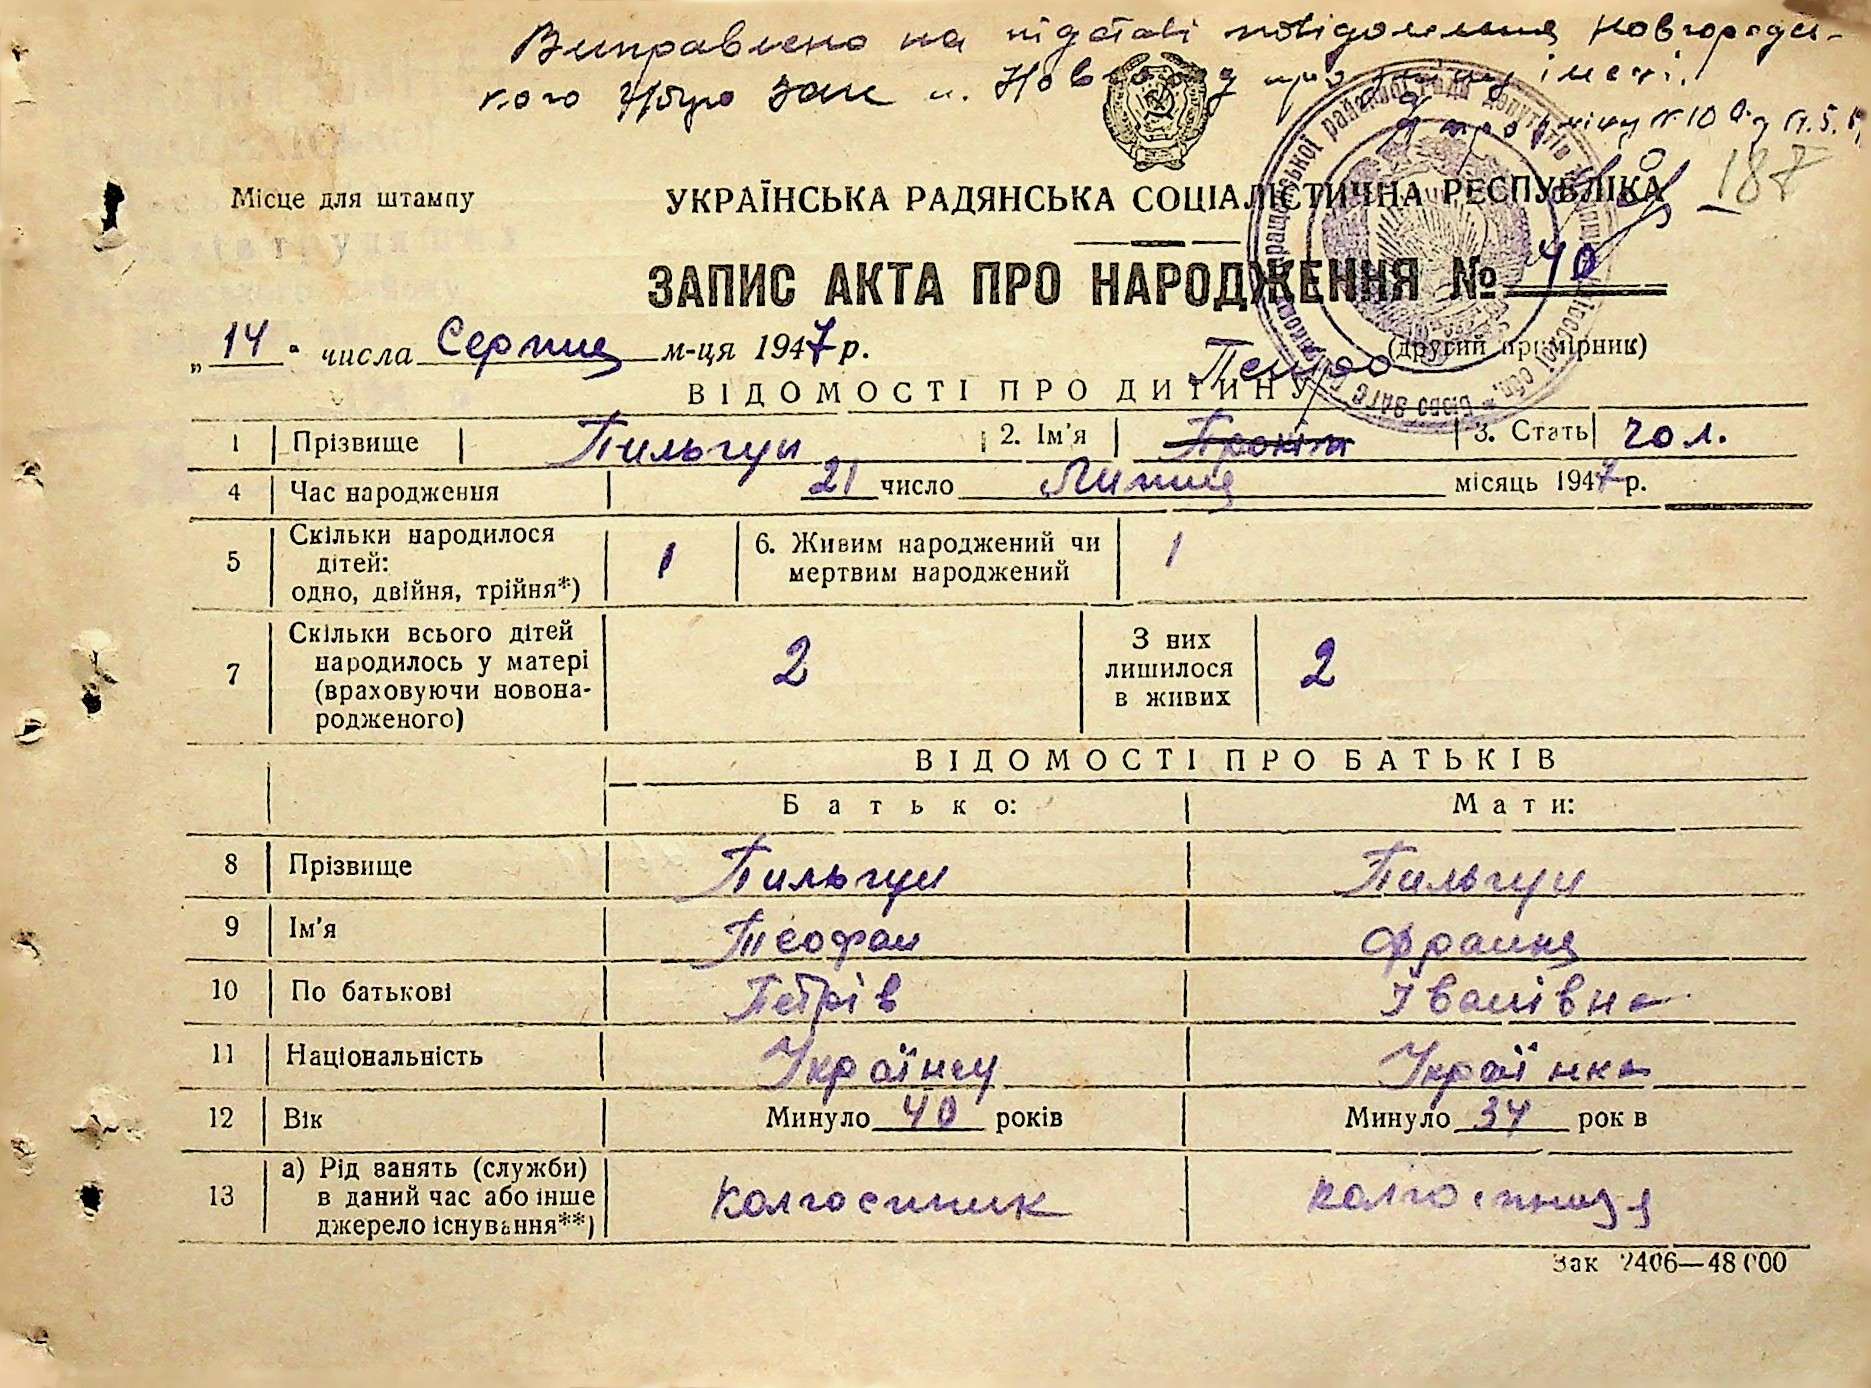 Виправлено на підставі повідомлення Новгородсь-
кого бюро ЗАГС м. Новгород про зміну імені.
про зміну № 10
187
Місце для штампу
УКРАЇНСЬКА РАДЯНСЬКА СОЦІАЛІСТИЧНА РЕСПУБЛІКА
ЗАПИС АКТА ПРО НАРОДЖЕННЯ № 40
„14" числа Серпня м-ця 1947 р. (другий примірник)
Петро
ВІДОМОСТІ ПРО ДИТИНУ
1 Прізвище Пильгун 2. Ім'я Прокіп 3. Стать чол.
4 Час народження 21 число Липня місяць 1947 р.
5 Скільки народилося дітей: одно, двійня, трійня*) 1 6. Живим народжений чи мертвим народжений 1
7 Скільки всього дітей народилось у матері (враховуючи новона-родженого) 2 З них лишилося в живих 2
ВІДОМОСТІ ПРО БАТЬКІВ
Батько: Мати:
8 Прізвище Пильгун Пильгун
9 Ім'я Теофан Франка
10 По батькові Петрів Іванівна
11 Національність Українец Українка
12 Вік Минуло 40 років Минуло 34 рок в
13 а) Рід занять (служби) в даний час або інше джерело існування**) колгоспник колгоспниця
Зак 2406—48 000